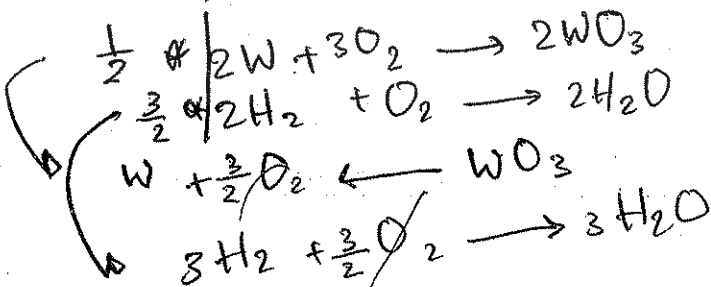 1/2 * | 2W + 3O₂ → 2WO₃
3/2 * | 2H₂ + O₂ → 2H₂O
W + 3/2 O₂ ← WO₃
3H₂ + 3/2 O₂ → 3H₂O